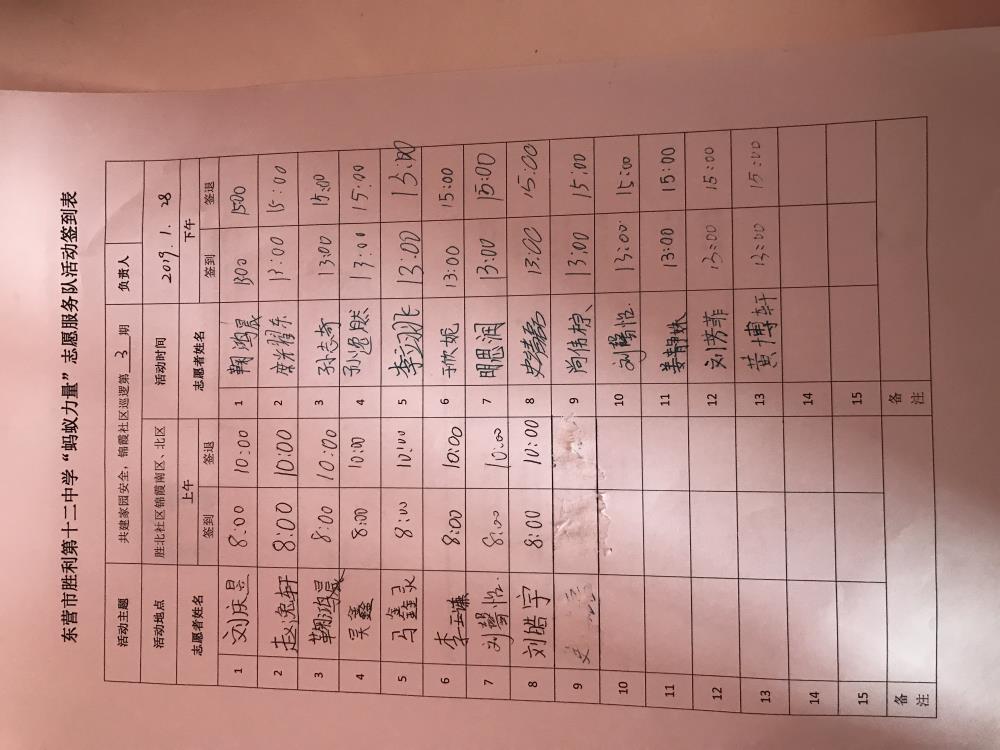 东营市胜利第十二中学“蚂蚁力量”志愿服务队活动签到表
活动主题 共建家园安全，锦霞社区巡逻第 3 期 负责人
活动地点 胜北社区锦霞南区、北区 活动时间 2019.1.28
志愿者姓名 上午 志愿者姓名 下午
签到 签退 签到 签退
1 刘庆昊 8:00 10:00 1 鞠鸿晟 1300 1500
2 赵逸轩 8:00 10:00 2 耀东 13:00 15:00
3 鞠鸿晟 8:00 10:00 3 孙志奇 13:00 15:00
4 吴鑫 8:00 10:00 4 孙逸然 13:00 15:00
5 马鑫 8:00 10:00 5 李 13:00 13:00
6 李 8:00 10:00 6 于欣妮 13:00 15:00
7 刘馨怡. 8:00 10:00 7 明思润 13:00 15:00
8 刘皓宇 8:00 10:00 8 史 13:00 15:00
9 史 9 尚伟棕 13:00 15:00
10 10 刘馨怡. 13:00 15:00
11 11 姜静姝 13:00 15:00
12 12 刘芳菲 13:00 15:00
13 13 黄博轩 13:00 15:00
14 14
15 15
备注 备注